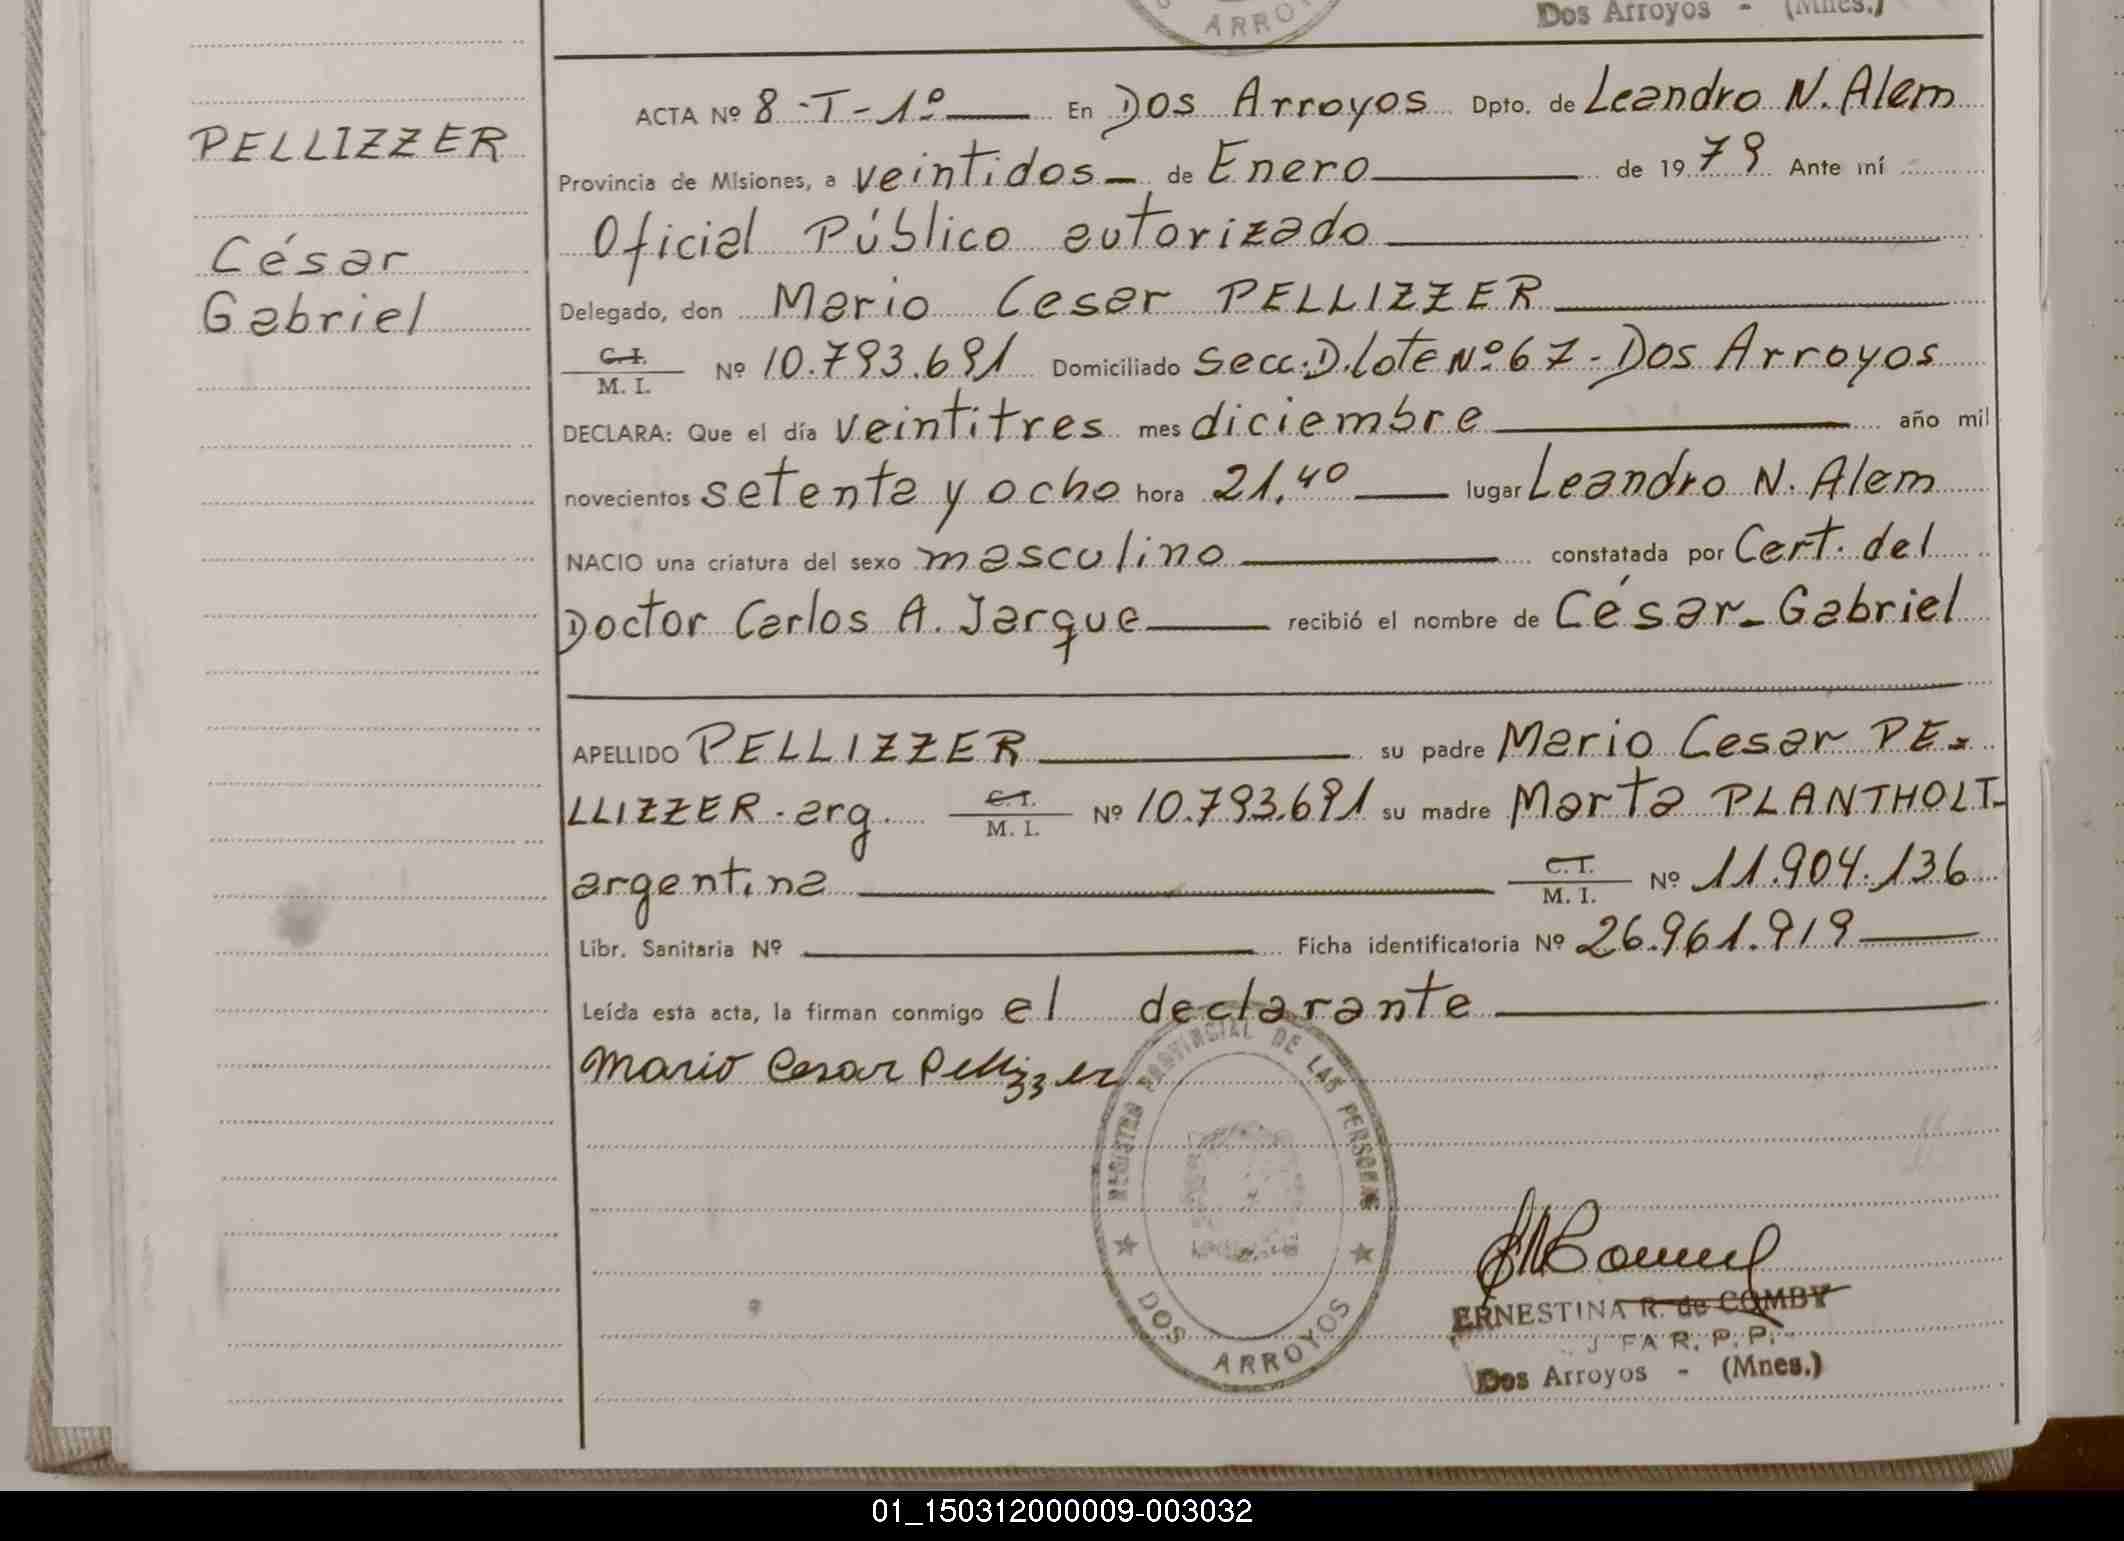 ARROY
Dos Arroyos - (Mnes.)
PELLIZZER
César
Gabriel
ACTA Nº 8-T-1º En Dos Arroyos Dpto. de Leandro N. Alem
Provincia de Misiones, a veintidos de Enero de 1979 Ante mí
Oficial Público autorizado
Delegado, don Mario Cesar PELLIZZER
C. I.
M. I. Nº 10.793.691 Domiciliado Secc. D. lote Nº 67 - Dos Arroyos
DECLARA: Que el día veintitres mes diciembre año mil
novecientos setenta y ocho hora 21,40 lugar Leandro N. Alem
NACIO una criatura del sexo masculino constatada por Cert. del
Doctor Carlos A. Jarque recibió el nombre de César - Gabriel
APELLIDO PELLIZZER su padre Mario Cesar PE=
LLIZZER - arg. C. I. M. I. Nº 10.793.691 su madre Marta PLANTHOLT-
argentina C. I. M. I. Nº 11.904.136
Libr. Sanitaria Nº Ficha identificatoria Nº 26.961.919
Leída esta acta, la firman conmigo el declarante
Mario Cesar Pellizzer
REGISTRO PROVINCIAL DE LAS PERSONAS
DOS ARROYOS
ERNESTINA R. de COMBY
R. P. P.
Dos Arroyos - (Mnes.)
01_150312000009-003032